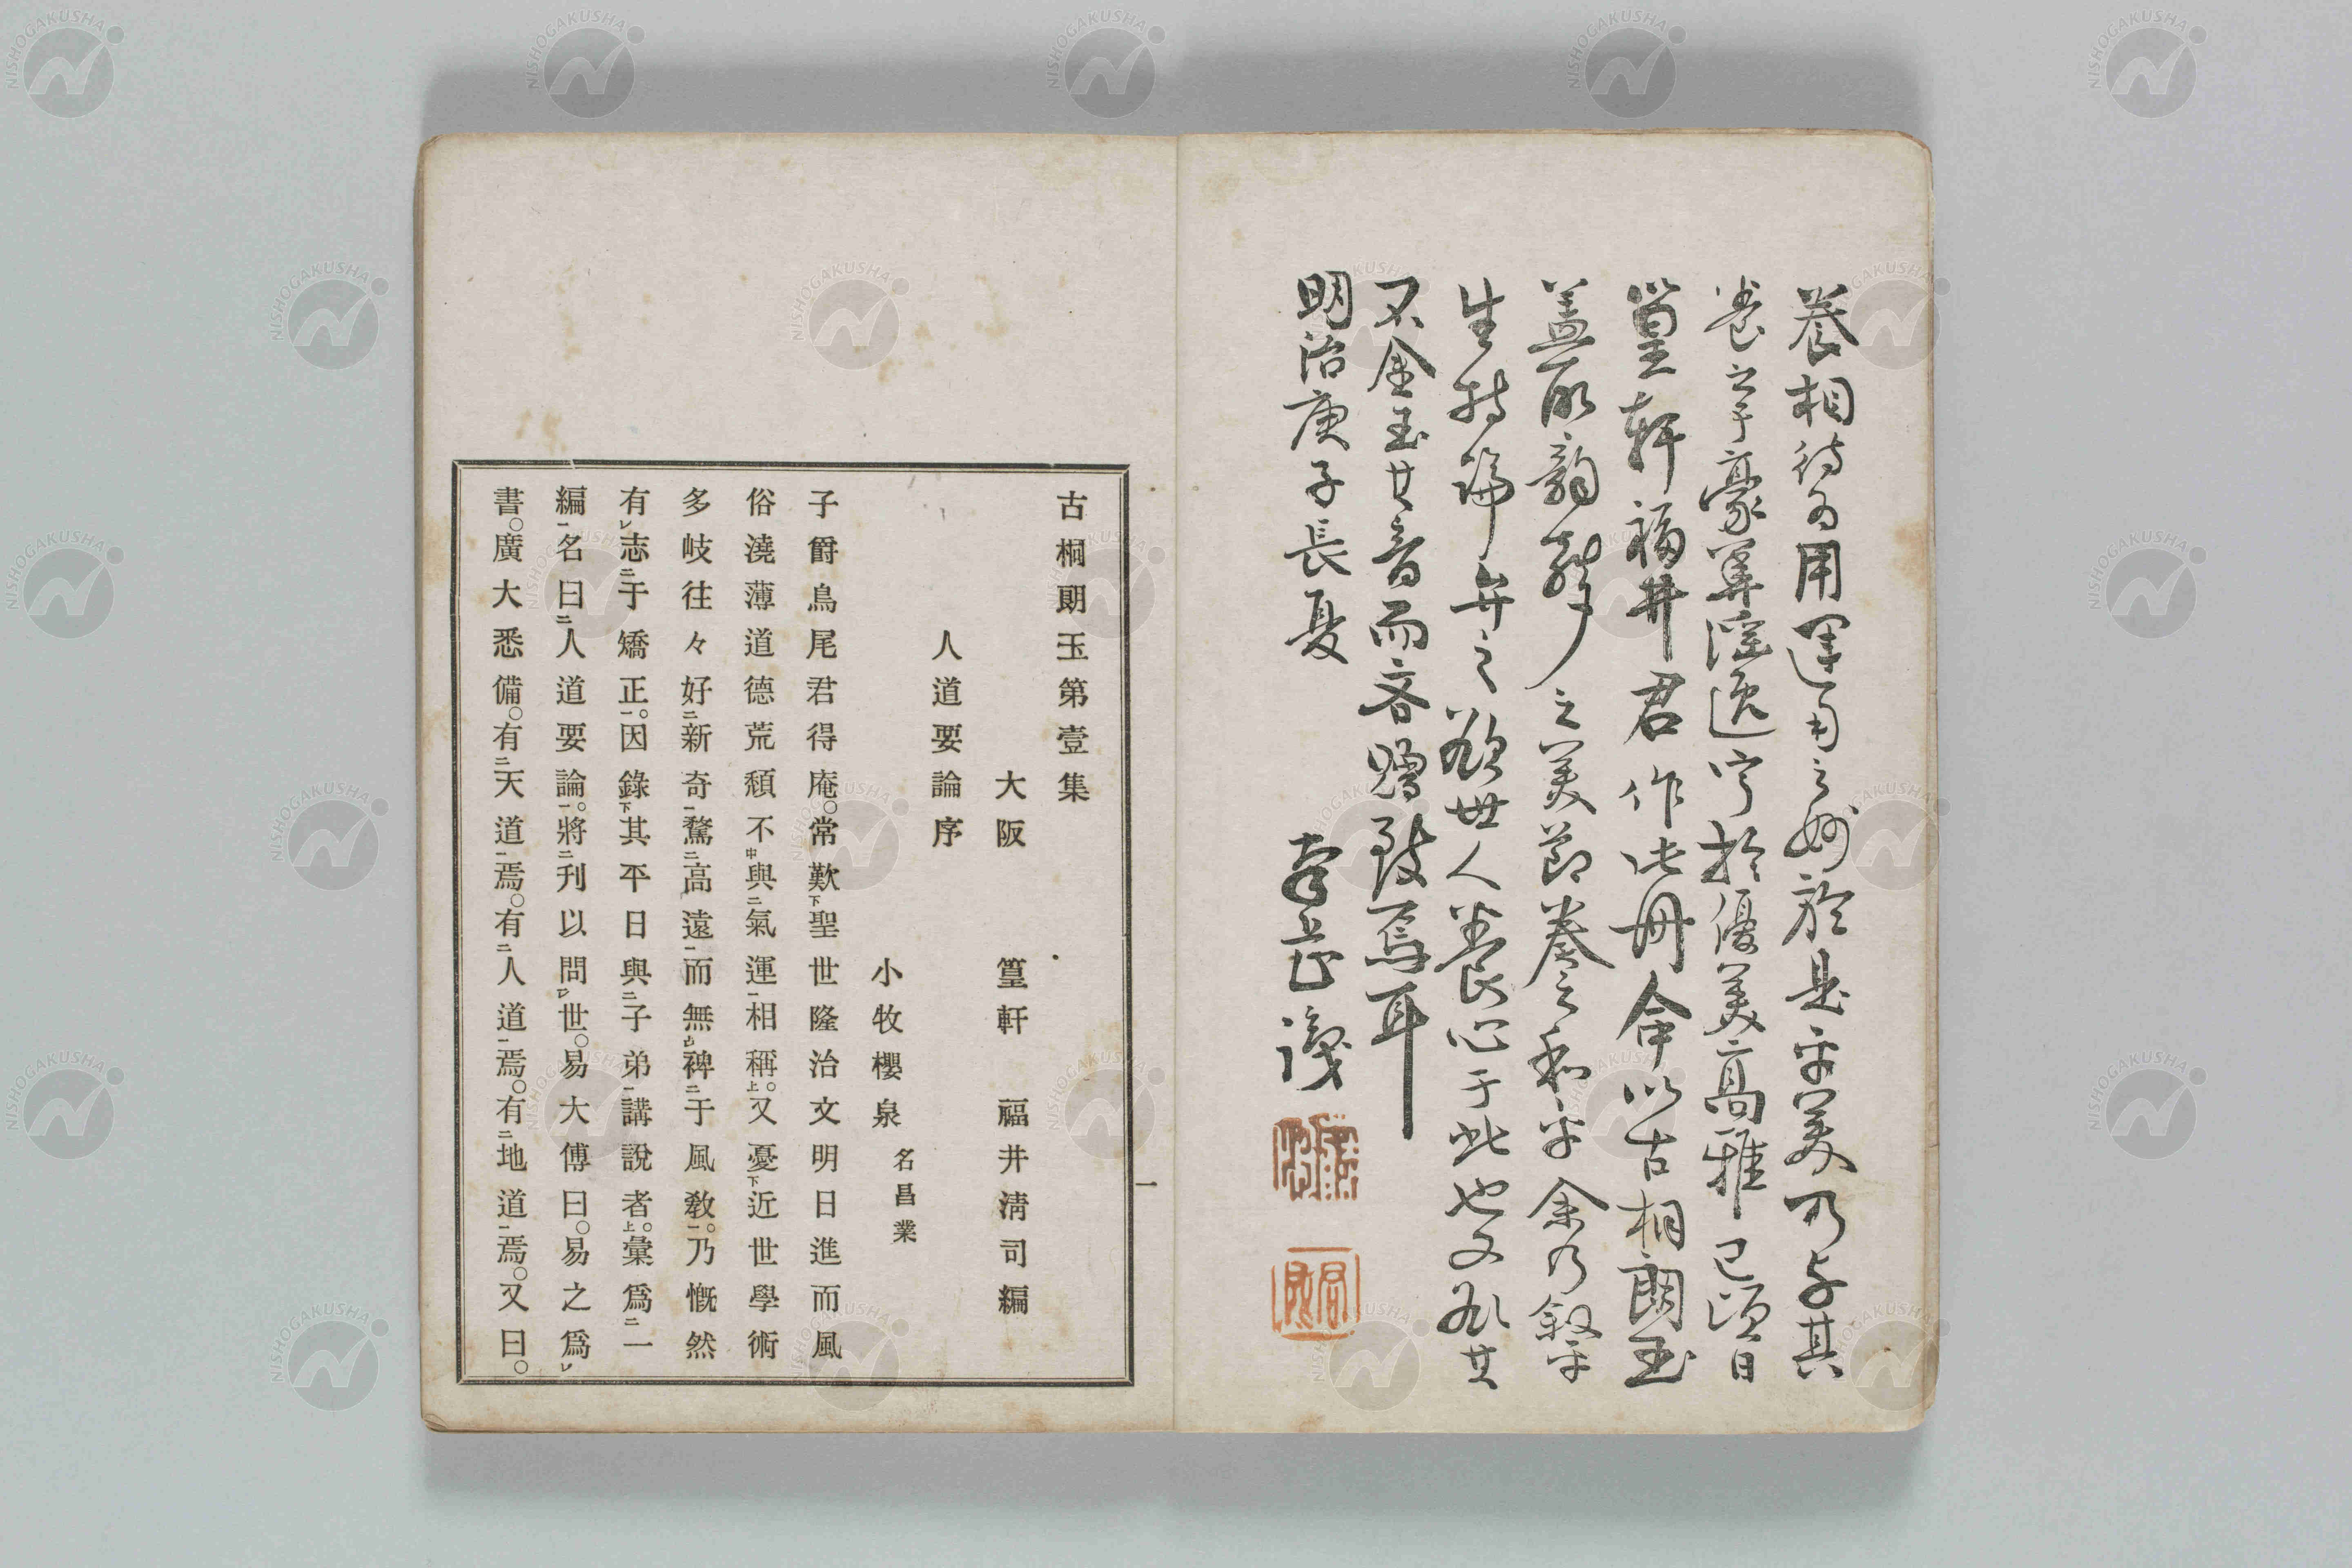 養相待為用運用之妙於是乎美乃与其
养立乎豪華淫逸寧於優美高雅已頃日
篁軒福井君作此冊命以古桐朗玉
蓋取韵敲之美節奏之和乎余乃叙平
生持論弁之欲世人养良心于此也又欲其
不金玉其音而吝贈致焉耳
明治庚子長夏
識
古桐朗玉第壹集
大阪 篁軒 福井淸司編
人道要論序
小牧櫻泉 名昌業
子爵鳥尾君得庵。常歎下聖世隆治文明日進而風
俗澆薄道德荒頹不中與二氣運一相稱上。又憂下近世學術
多岐往々好二新奇一騖二高遠一而無レ裨二于風敎一。乃慨然
有レ志二于矯正一。因錄下其平日與二子弟一講說者上。彙爲二一
編一名曰二人道要論一。將二刊以問レ世。易大傳曰。易之爲レ
書。廣大悉備。有二天道一焉。有二人道一焉。有二地道一焉。又曰。
一
NISHOGAKUSHA